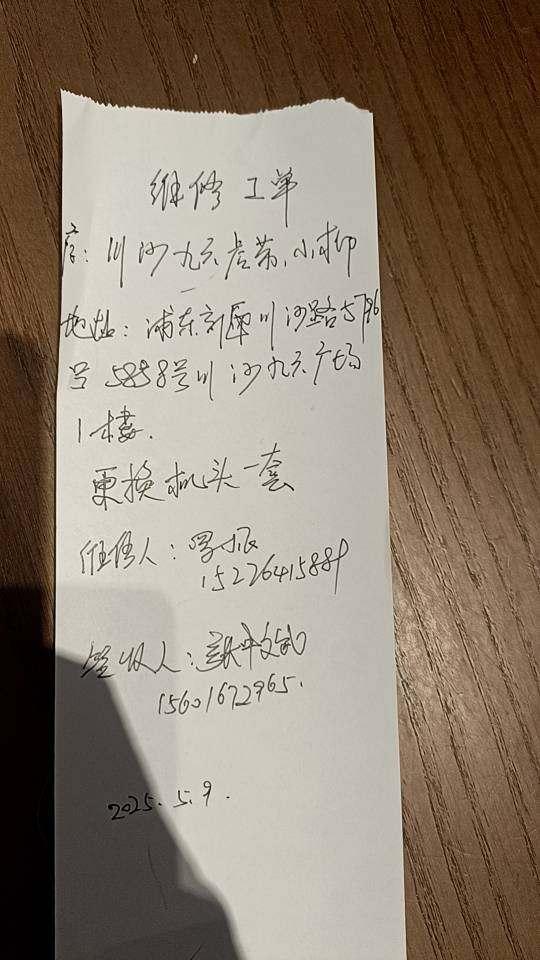 维修工单
店: 川沙九六君第.小柳
地址: 浦东新区川沙路5796
号 5858号川沙九六广场
1楼.
更换机头一套
维修人:
15226415889
签收人:
15601672965.
2025.5.9.